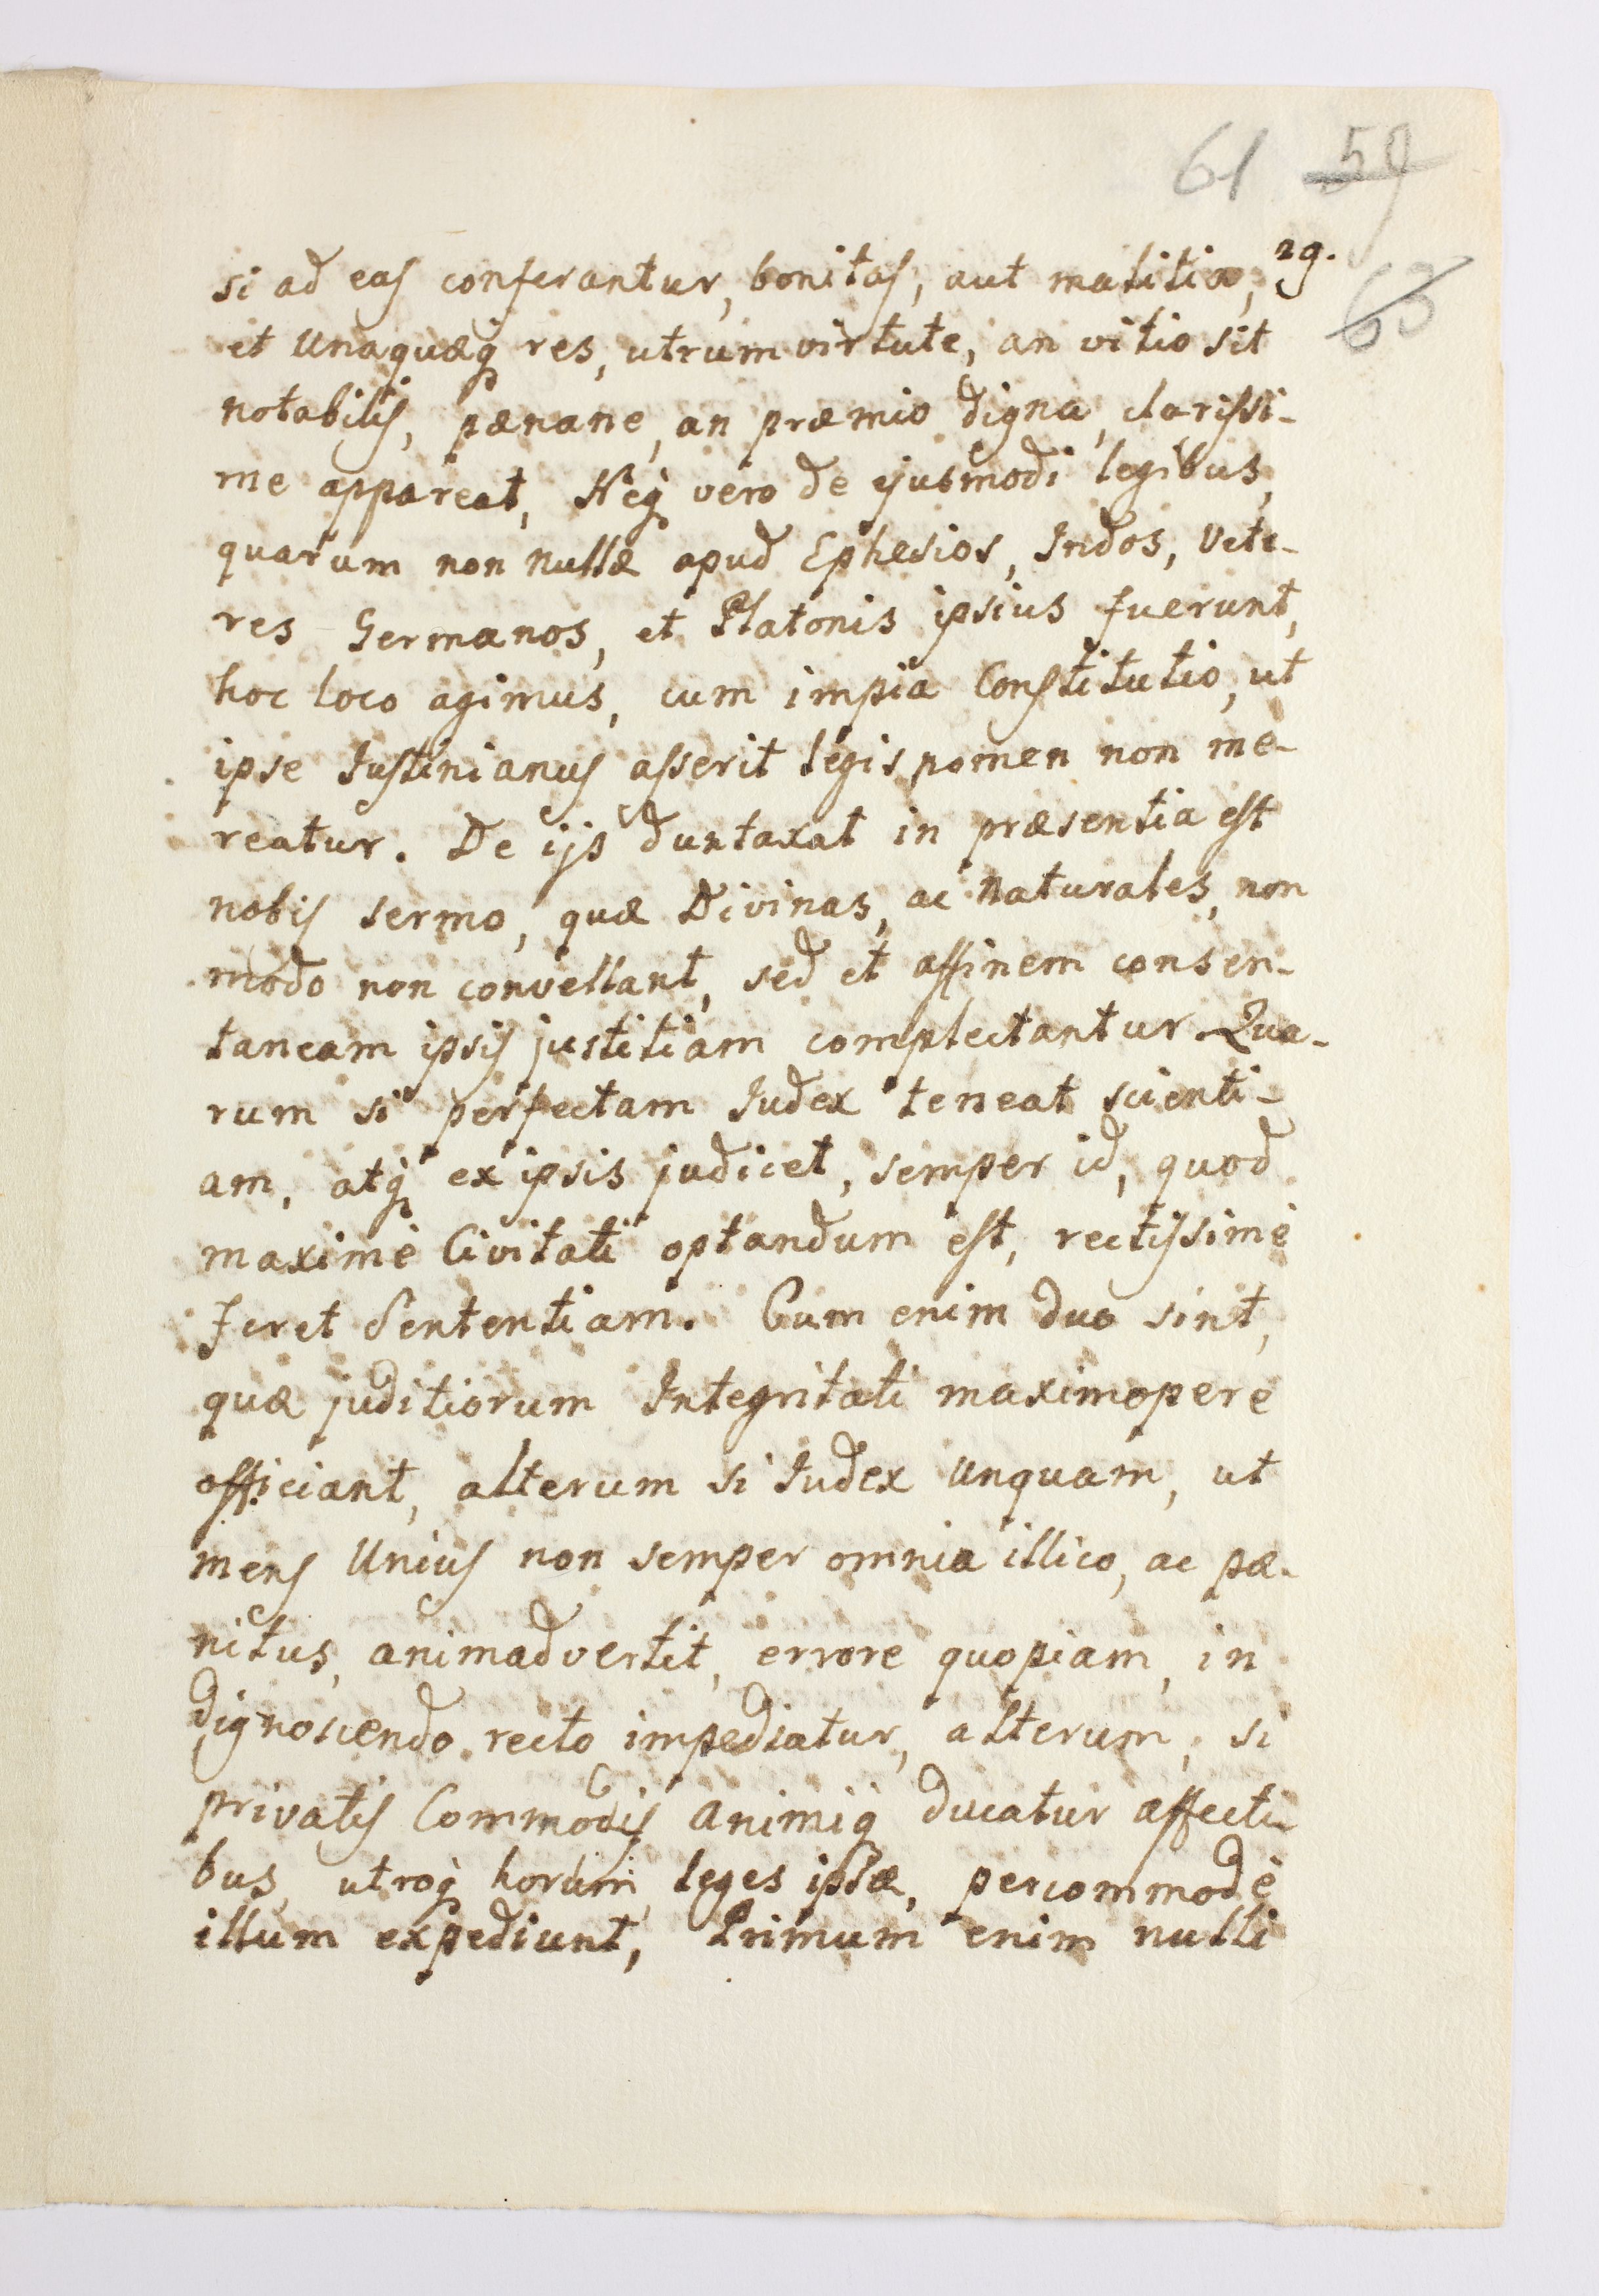 61 59
29.
63
si ad eas conferantur, bonitas, aut malitia,
et Unaquæq res, utrum virtute, an vitio sit
notabilis, pænane, an præmio digna, clarissi-
me appareat, Neq vero de ejusmodi legibus,
quarum non nullæ apud Ephesios, Indos, Vete-
res Germanos, et Platonis ipsius fuerunt,
hoc loco agimus, cum impia Constitutio, ut
ipse Justinianus asserit legis nomen non me-
reatur. De ijs duntaxat in præsentia est
nobis sermo, quæ Divinas, ac Naturales, non
modo non convellant, sed et affinem consen-
taneam ipsis justitiam complectantur Qua-
rum si perfectam Judex teneat scienti-
am, atq ex ipsis judicet, semper id, quod
maximè Civitati optandum est, rectissimè
feret Sententiam. Cum enim duo sint,
quæ juditiorum Integritati maximopere
officiant, alterum si Judex Unquam, ut
mens Unius non semper omnia illico, ac pæ-
nitus, animadvertit, errore quopiam, in
dignoscendo recto impediatur, alterum, si
privatis Commodis animiq ducatur affectu
bus, utroq horum leges ipsæ, percommodè
illum expediunt, Primum enim nulli